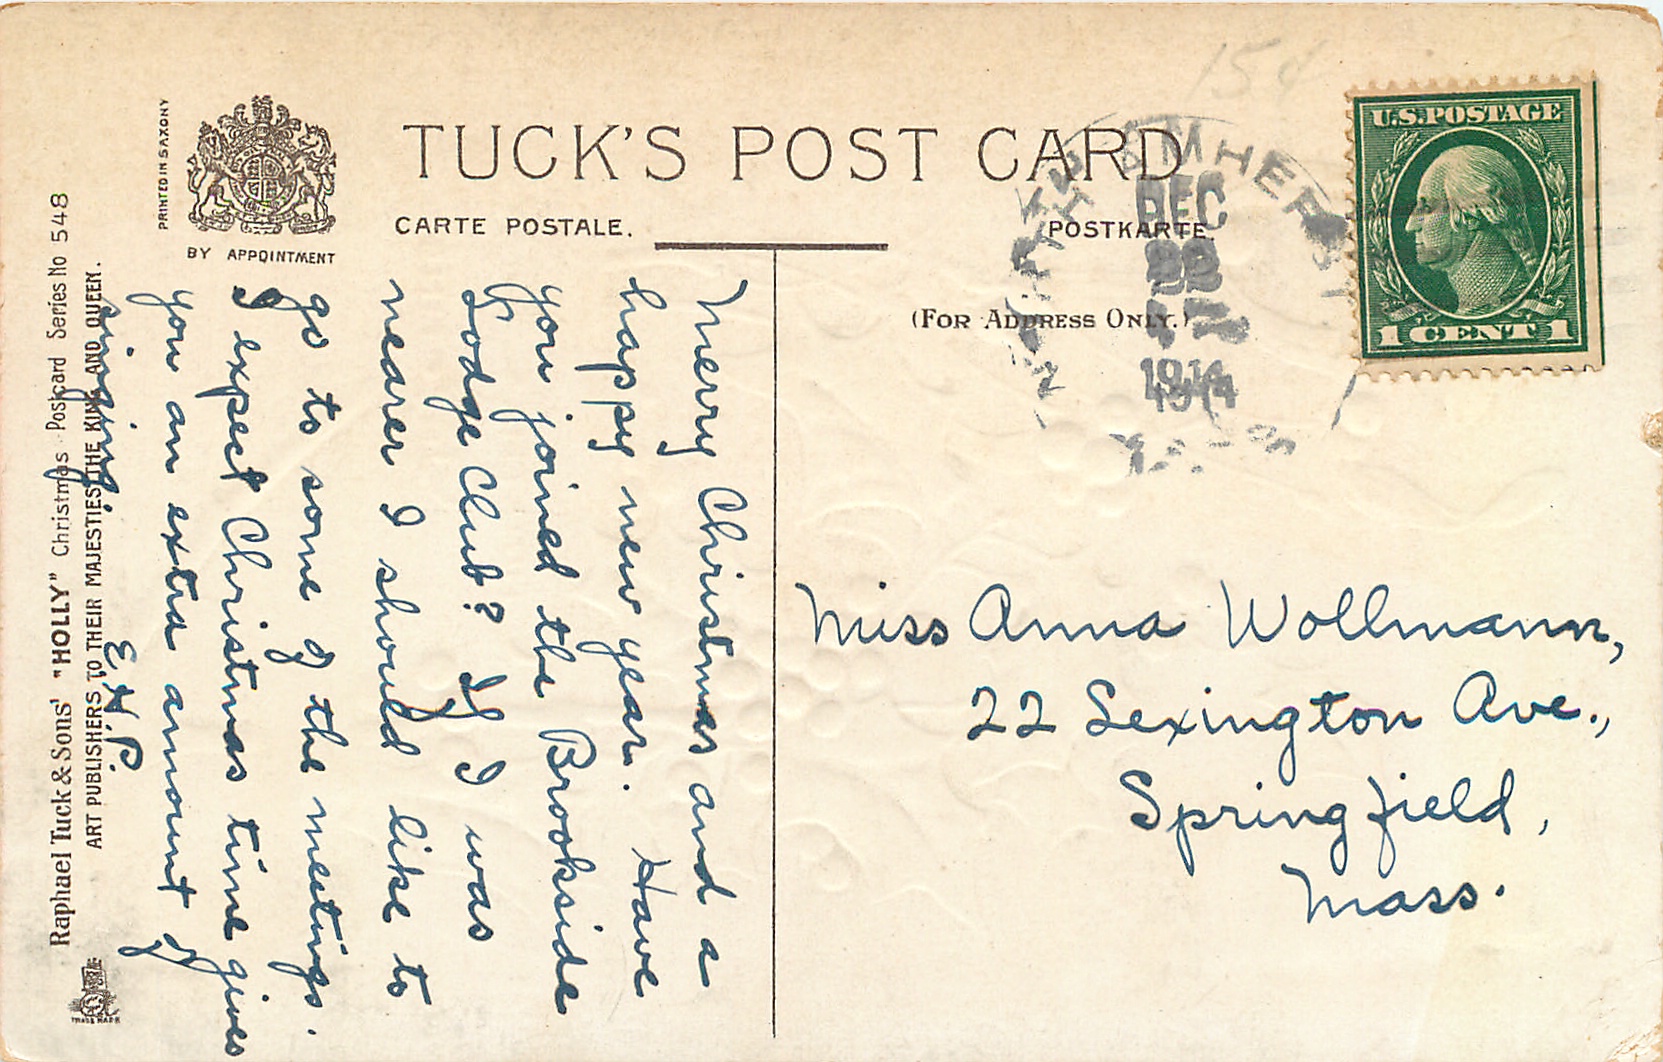 15¢
TUCK'S POST CARD
CARTE POSTALE.
POSTKARTE.
(FOR ADDRESS ONLY.)
PRINTED IN SAXONY
BY APPOINTMENT
NORTH AMHERST
DEC
22
1914
MASS.
U.S. POSTAGE
1 CENT 1
Merry Christmas and a
happy new year. Have
you joined the Brookside
Lodge Club? If I was
nearer I should like to
go to some of the meetings.
I expect Christmas time gives
you an extra amount of
singing.
E.H.P.
Miss Anna Wollmann,
22 Lexington Ave.,
Springfield,
Mass.
Raphael Tuck & Sons' "HOLLY" Christmas Postcard Series No 548
ART PUBLISHERS TO THEIR MAJESTIES THE KING AND QUEEN.
TRADE MARK